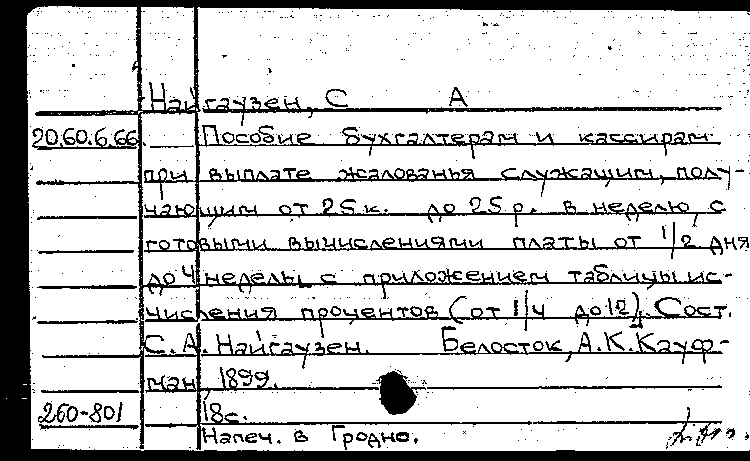 Найгаузен, С А
20.60.6.66. Пособие бухгалтерам и кассирам
при выплате жалованья служащим, полу-
чающим от 25 к. до 25 р. в неделю, с
готовыми вычислениями платы от 1/2 дня
до 4 недель, с приложением таблицы ис-
числения процентов (от 1/4 до 12). Сост.
С.А. Найгаузен. Белосток, А.К. Кауф-
ман, 1899.
260-801 18с.
Напеч. в Гродно.